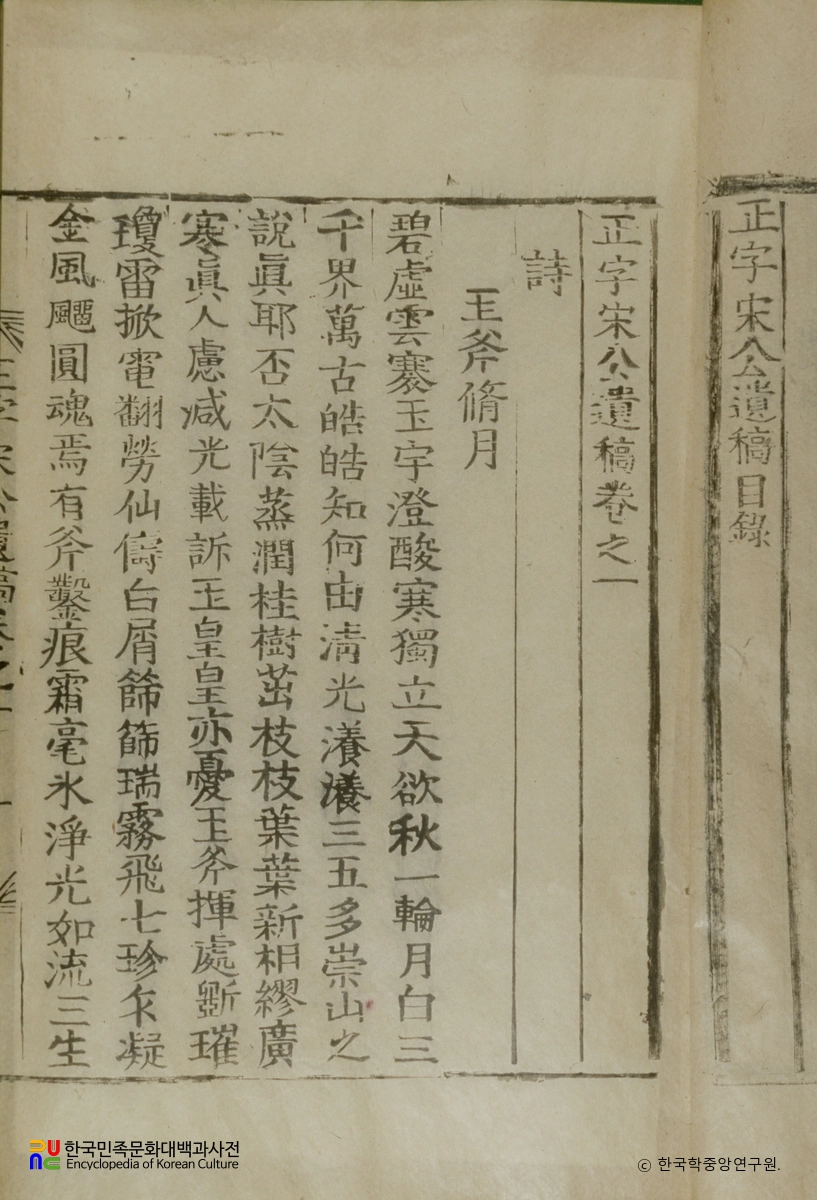 正字宋公遺稿目錄
正字宋公遺稿卷之一
詩
玉斧脩月
碧虛雲褰玉宇澄酸寒獨立天欲秋一輪月白三
千界萬古皓皓知何由淸光瀁瀁三五多崇山之
說眞耶否太陰蒸潤桂樹茁枝枝葉葉新相繆廣
寒眞人慮减光載訴玉皇皇亦憂玉斧揮處斲璀
瓊雷掀電翻勞仙儔白屑篩篩瑞霧飛七珍氽凝
金風飀圓魂焉有斧鑿痕霜毫氷淨光如流三生
正字宋公遺稿卷之一
한국민족문화대백과사전
Encyclopedia of Korean Culture
© 한국학중앙연구원.